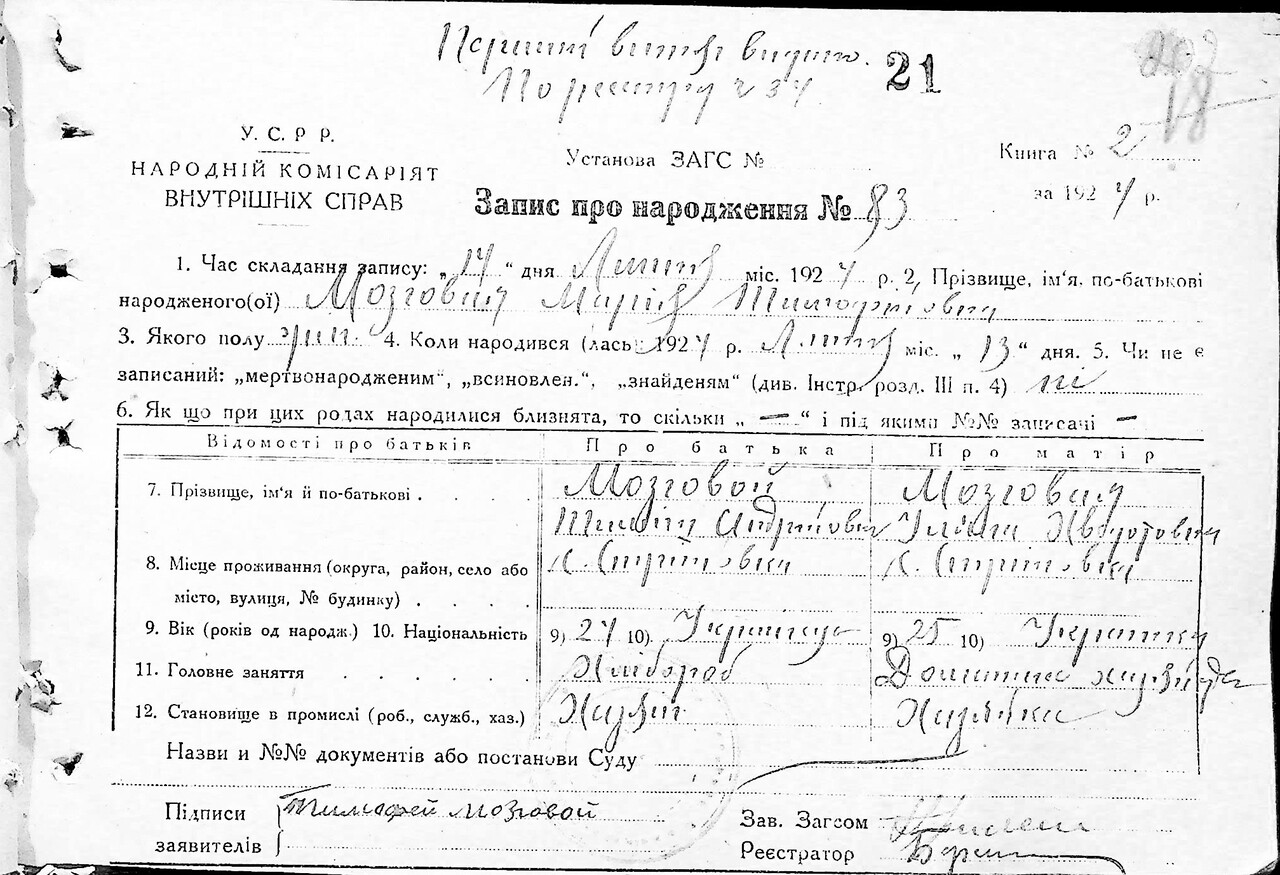 Перший витяг видано.
По реєстру ч 34
21
18
У. С. Р Р.
НАРОДНІЙ КОМІСАРІЯТ
ВНУТРІШНІХ СПРАВ
Установа ЗАГС №
Книга № 2
за 1927 р.
Запис про народження № 83
1. Час складання запису: „ 17 " дня Лютня міс. 1927 р. 2, Прізвище, ім'я, по-батькові
народженого(ої) Мозговая Марія Тимофтовна
3. Якого полу жін. 4. Коли народився (лась) 1927 р. Лютня міс. „ 13 " дня. 5. Чи не є
записаний: „мертвонародженим", „всиновлен.", „знайденям" (див. Інстр. розд. III п. 4) ні
6. Як що при цих родах народилися близнята, то скільки „ — " і під якими №№ записачі —
Відомості про батьків Про батька Про матір
7. Прізвище, ім'я й по-батькові . . . . Мозговой Мозговая
Андрійович
8. Місце проживання (округа, район, село або
місто, вулиця, № будинку) . . . .
9. Вік (років од народж.) 10. Національність 9) 27 10) Українець 9) 25 10) Українка
11. Головне заняття . . . . . . Хлібороб Домашнє
12. Становище в промислі (роб., служб., хаз.) Хазяїн Хазяйка
Назви и №№ документів або постанови Суду
Підписи Тимофей Мозговой
заявителів
Зав. Загсом
Реєстратор